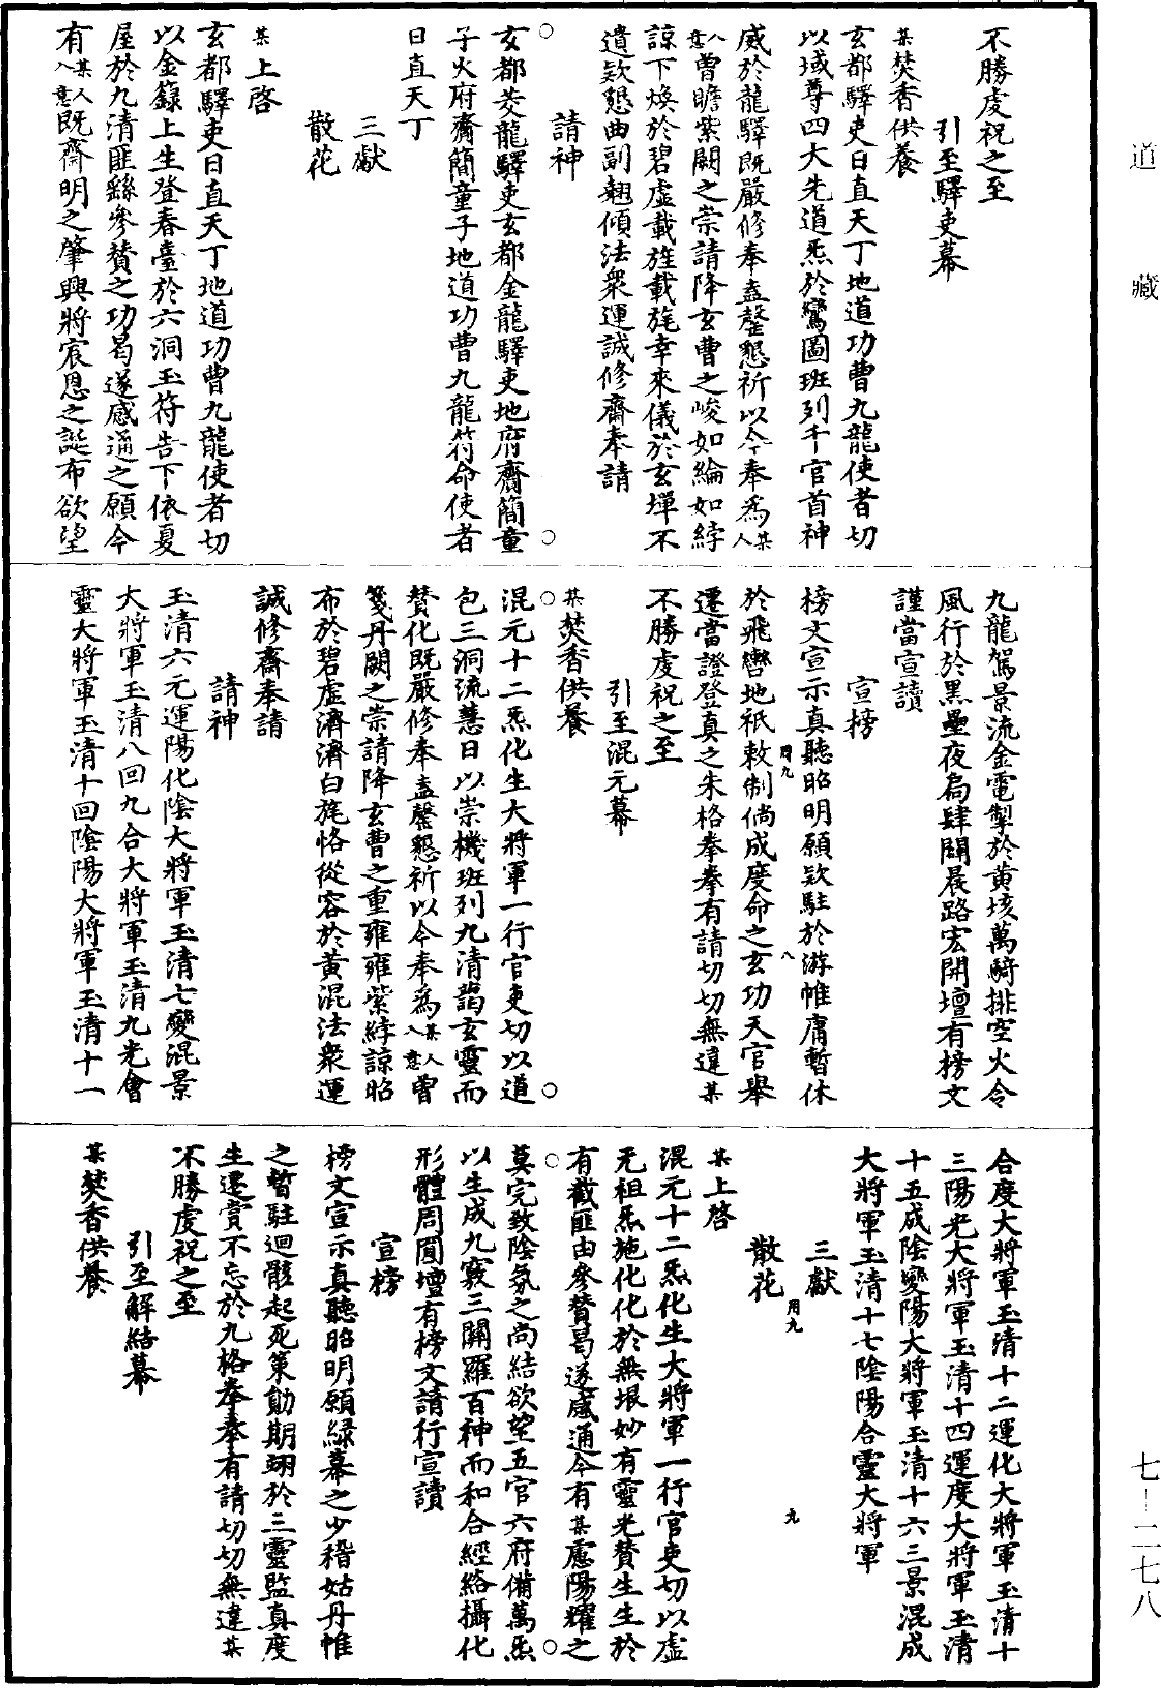 道藏
不勝虔祝之至
引至驛吏幕
某焚香供養
玄都驛吏日直天丁地道功曹九龍使者切
以域尊四大先道炁於鸞圖班列千官首神
威於龍驛既嚴修奉盍罄懇祈以今奉為某人
意入曽瞻紫闕之崇請降玄曹之峻如綸如綍
諒下煥於碧虛載旌載旄幸來儀於玄墠不
遺欵懇曲副翹傾法衆運誠修齋奉請
請神
○ ○
玄都茭龍驛吏玄都金龍驛吏地府齎簡童
子火府齎簡童子地道功曹九龍符命使者
日直天丁
三獻
散花
某上啓
玄都驛吏日直天丁地道功曹九龍使者切
以金籙上生登春臺於六洞玉符告下依夏
屋於九清匪繇參贊之功曷遂感通之願今
有某人入意既齋明之肇興將宸恩之誕布欲望
九龍駕景流金電掣於黄垓萬騎排空火令
風行於黑壘夜扃肆闢晨路宏開壇有榜文
謹當宣讀
宣榜
榜文宣示真聽昭明願欵駐於游帷庸暫休
用九 八
於飛轡地祇敕制倘成度命之玄功天官舉
遷當證登真之朱格拳拳有請切切無違某
不勝虔祝之至
引至混元幕
某焚香供養
○ ○
混元十二炁化生大將軍一行官吏切以道
包三洞流慧日以崇機班列九清藹玄靈而
贊化既嚴修奉盍罄懇祈以今奉為某人入意曽
箋丹闕之崇請降玄曹之重雍雍紫綍諒昭
布於碧虛濟濟白旄恪從容於黄混法衆運
誠修齋奉請
請神
玉清六元運陽化陰大將軍玉清七變混景
大將軍玉清八回九合大將軍玉清九光會
靈大將軍玉清十回陰陽大將軍玉清十一
合度大將軍玉清十二運化大將軍玉清十
三陽光大將軍玉清十四運度大將軍玉清
十五成陰變陽大將軍玉清十六三景混成
大將軍玉清十七陰陽合靈大將軍
三獻
用九 九
散花
某上啓
混元十二炁化生大將軍一行官吏切以虛
无祖炁施化化於無垠妙有靈光贊生生於
有截匪由參贊曷遂感通今有某慮陽耀之
○ ○
莫完致陰氛之尚結欲望五官六府備萬炁
以生成九竅三關羅百神而和合經絡攝化
形體周圓壇有榜文請行宣讀
宣榜
榜文宣示真聽昭明願緑幕之少稽姑丹帷
之暫駐迴骸起死策勛期翊於三靈監真度
生還賞不忘於九格拳拳有請切切無違某
不勝虔祝之至
引至解結幕
某焚香供養
七—二七八